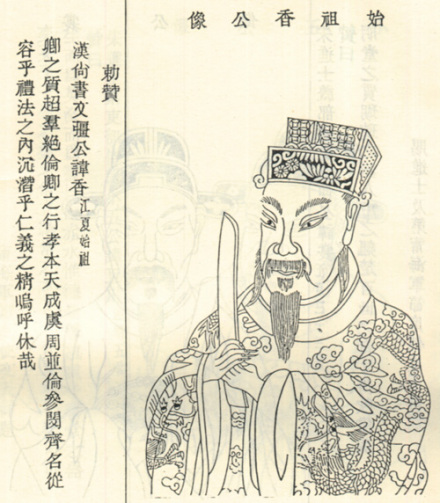 始祖香公像
勅贊
漢尙書文疆公諱香江夏始祖
卿之質超羣絶倫卿之行孝本天成虞周並倫參閔齊名從
容乎禮法之內沉潛乎仁義之精嗚呼休哉